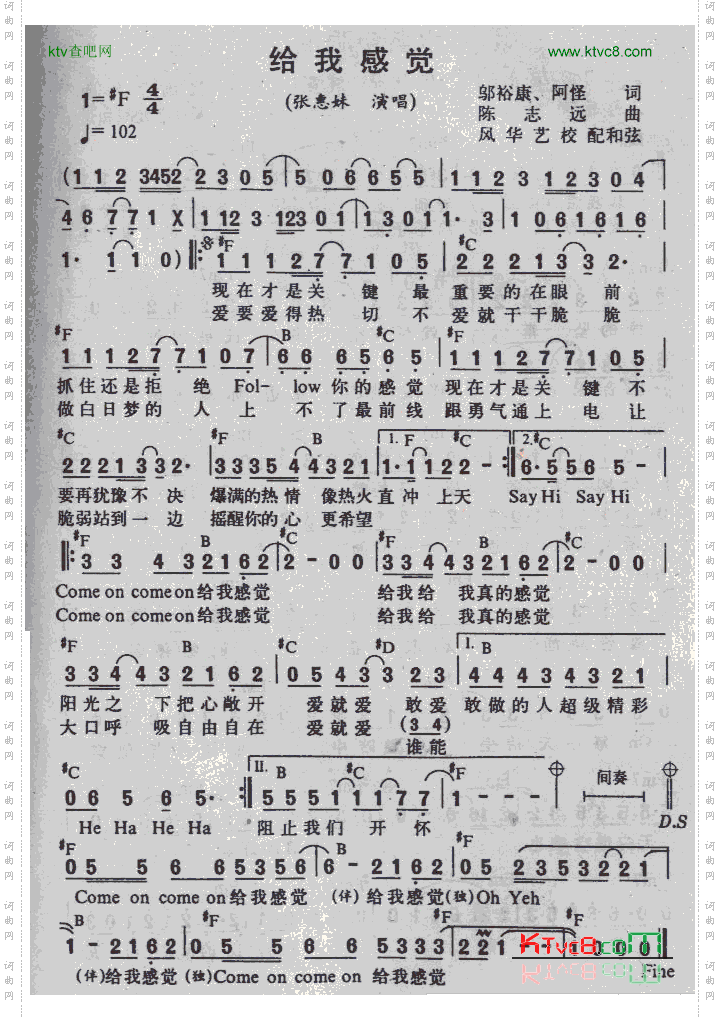 ktv查吧网
www.ktvc8.com
给我感觉
1=#F 4/4
(张惠妹 演唱)
邬裕康、阿怪 词
♩=102
陈志远 曲
风华艺校 配和弦
(1 1 2 3452 2 3 0 5 | 5 0 6 6 5 5 | 1 1 2 3 1 2 3 0 4
4 6 7 7 1 X | 1 12 3 123 0 1 | 1 3 0 1 1· 3 | 1 0 6 1 6 1 6
#F #C
1· 1 1 0) ‖: 1 1 1 2 7 7 1 0 5 | 2 2 2 1 3 3 2·
现在才是关 键 最 重要的在眼 前
爱要爱得热 切 不 爱就干干脆 脆
#F B #C #F
1 1 1 2 7 7 1 0 7 | 6 6 6 5 6 5 | 1 1 1 2 7 7 1 0 5
抓住还是拒 绝 Fol- low你的感觉 现在才是关 键 不
做白日梦的 人 上 不了最前线 跟勇气通上 电 让
#C #F B 1. F #C 2. #C
2 2 2 1 3 3 2· | 3 3 3 5 4 4 3 2 1 | 1· 1 1 2 2 - :‖ 6· 5 5 6 5 -
要再犹豫不 决 爆满的热情 像热火直冲 上天 Say Hi Say Hi
脆弱站到一 边 摇醒你的心 更希望
#F B #C #F B #C
‖: 3 3 4 3 2 1 6 2 | 2 - 0 0 | 3 3 4 4 3 2 1 6 2 | 2 - 0 0
Come on come on给我感觉 给我给 我真的感觉
Come on come on给我感觉 给我给 我真的感觉
#F B #C #D I. B
3 3 4 4 3 2 1 6 2 | 0 5 4 3 3 2 3 | 4 4 3 4 3 2 1
阳光之 下把心敞开 爱就爱 敢爱 敢做的人超级精彩
大口呼 吸自由自在 爱就爱 (3 4)
谁能
#C II. B #C #F
0 6 5 6 5· :‖ 5 5 5 1 1 1 7 7 | 1 - - - 间奏
He Ha He Ha 阻止我们 开 怀 D.S
#F B #F
0 5 5 6 6 5 3 5 6 | 6 - 2 1 6 2 | 0 5 2 3 5 3 2 2 1
Come on come on给我感觉 (伴)给我感觉(独)Oh Yeh
B #F #F #F
1 - 2 1 6 2 | 0 5 5 6 6 5 3 3 3 | 2 2 1 - | 1 0 0 0
(伴)给我感觉 (独)Come on come on 给我感觉 Fine
KTvc8.com